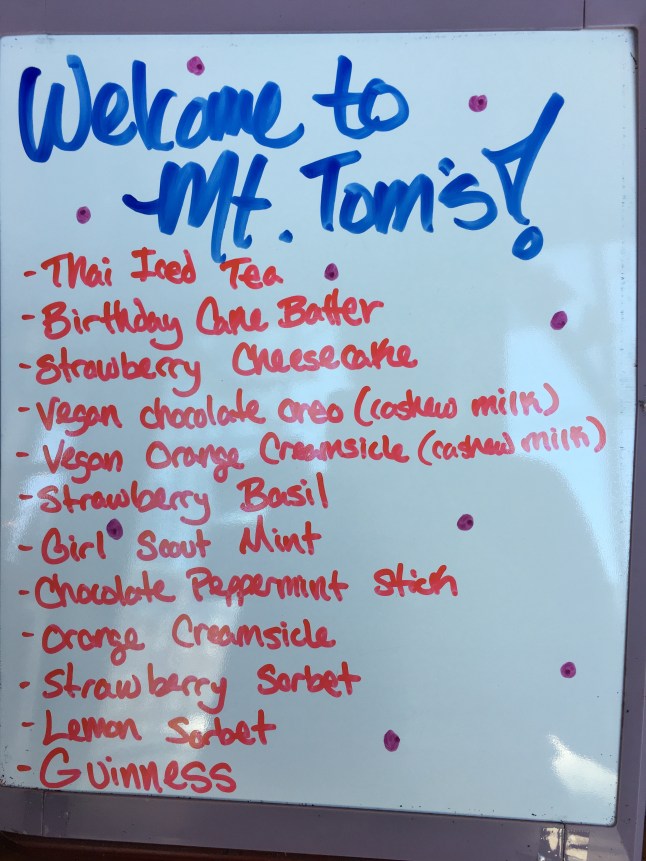 Welcome to
Mt. Tom's!
- Thai Iced Tea
- Birthday Cake Batter
- Strawberry Cheesecake
- Vegan chocolate oreo (cashew milk)
- Vegan Orange Creamsicle (cashew milk)
- Strawberry Basil
- Girl Scout Mint
- Chocolate Peppermint Stick
- Orange Creamsicle
- Strawberry Sorbet
- Lemon Sorbet
- Guinness